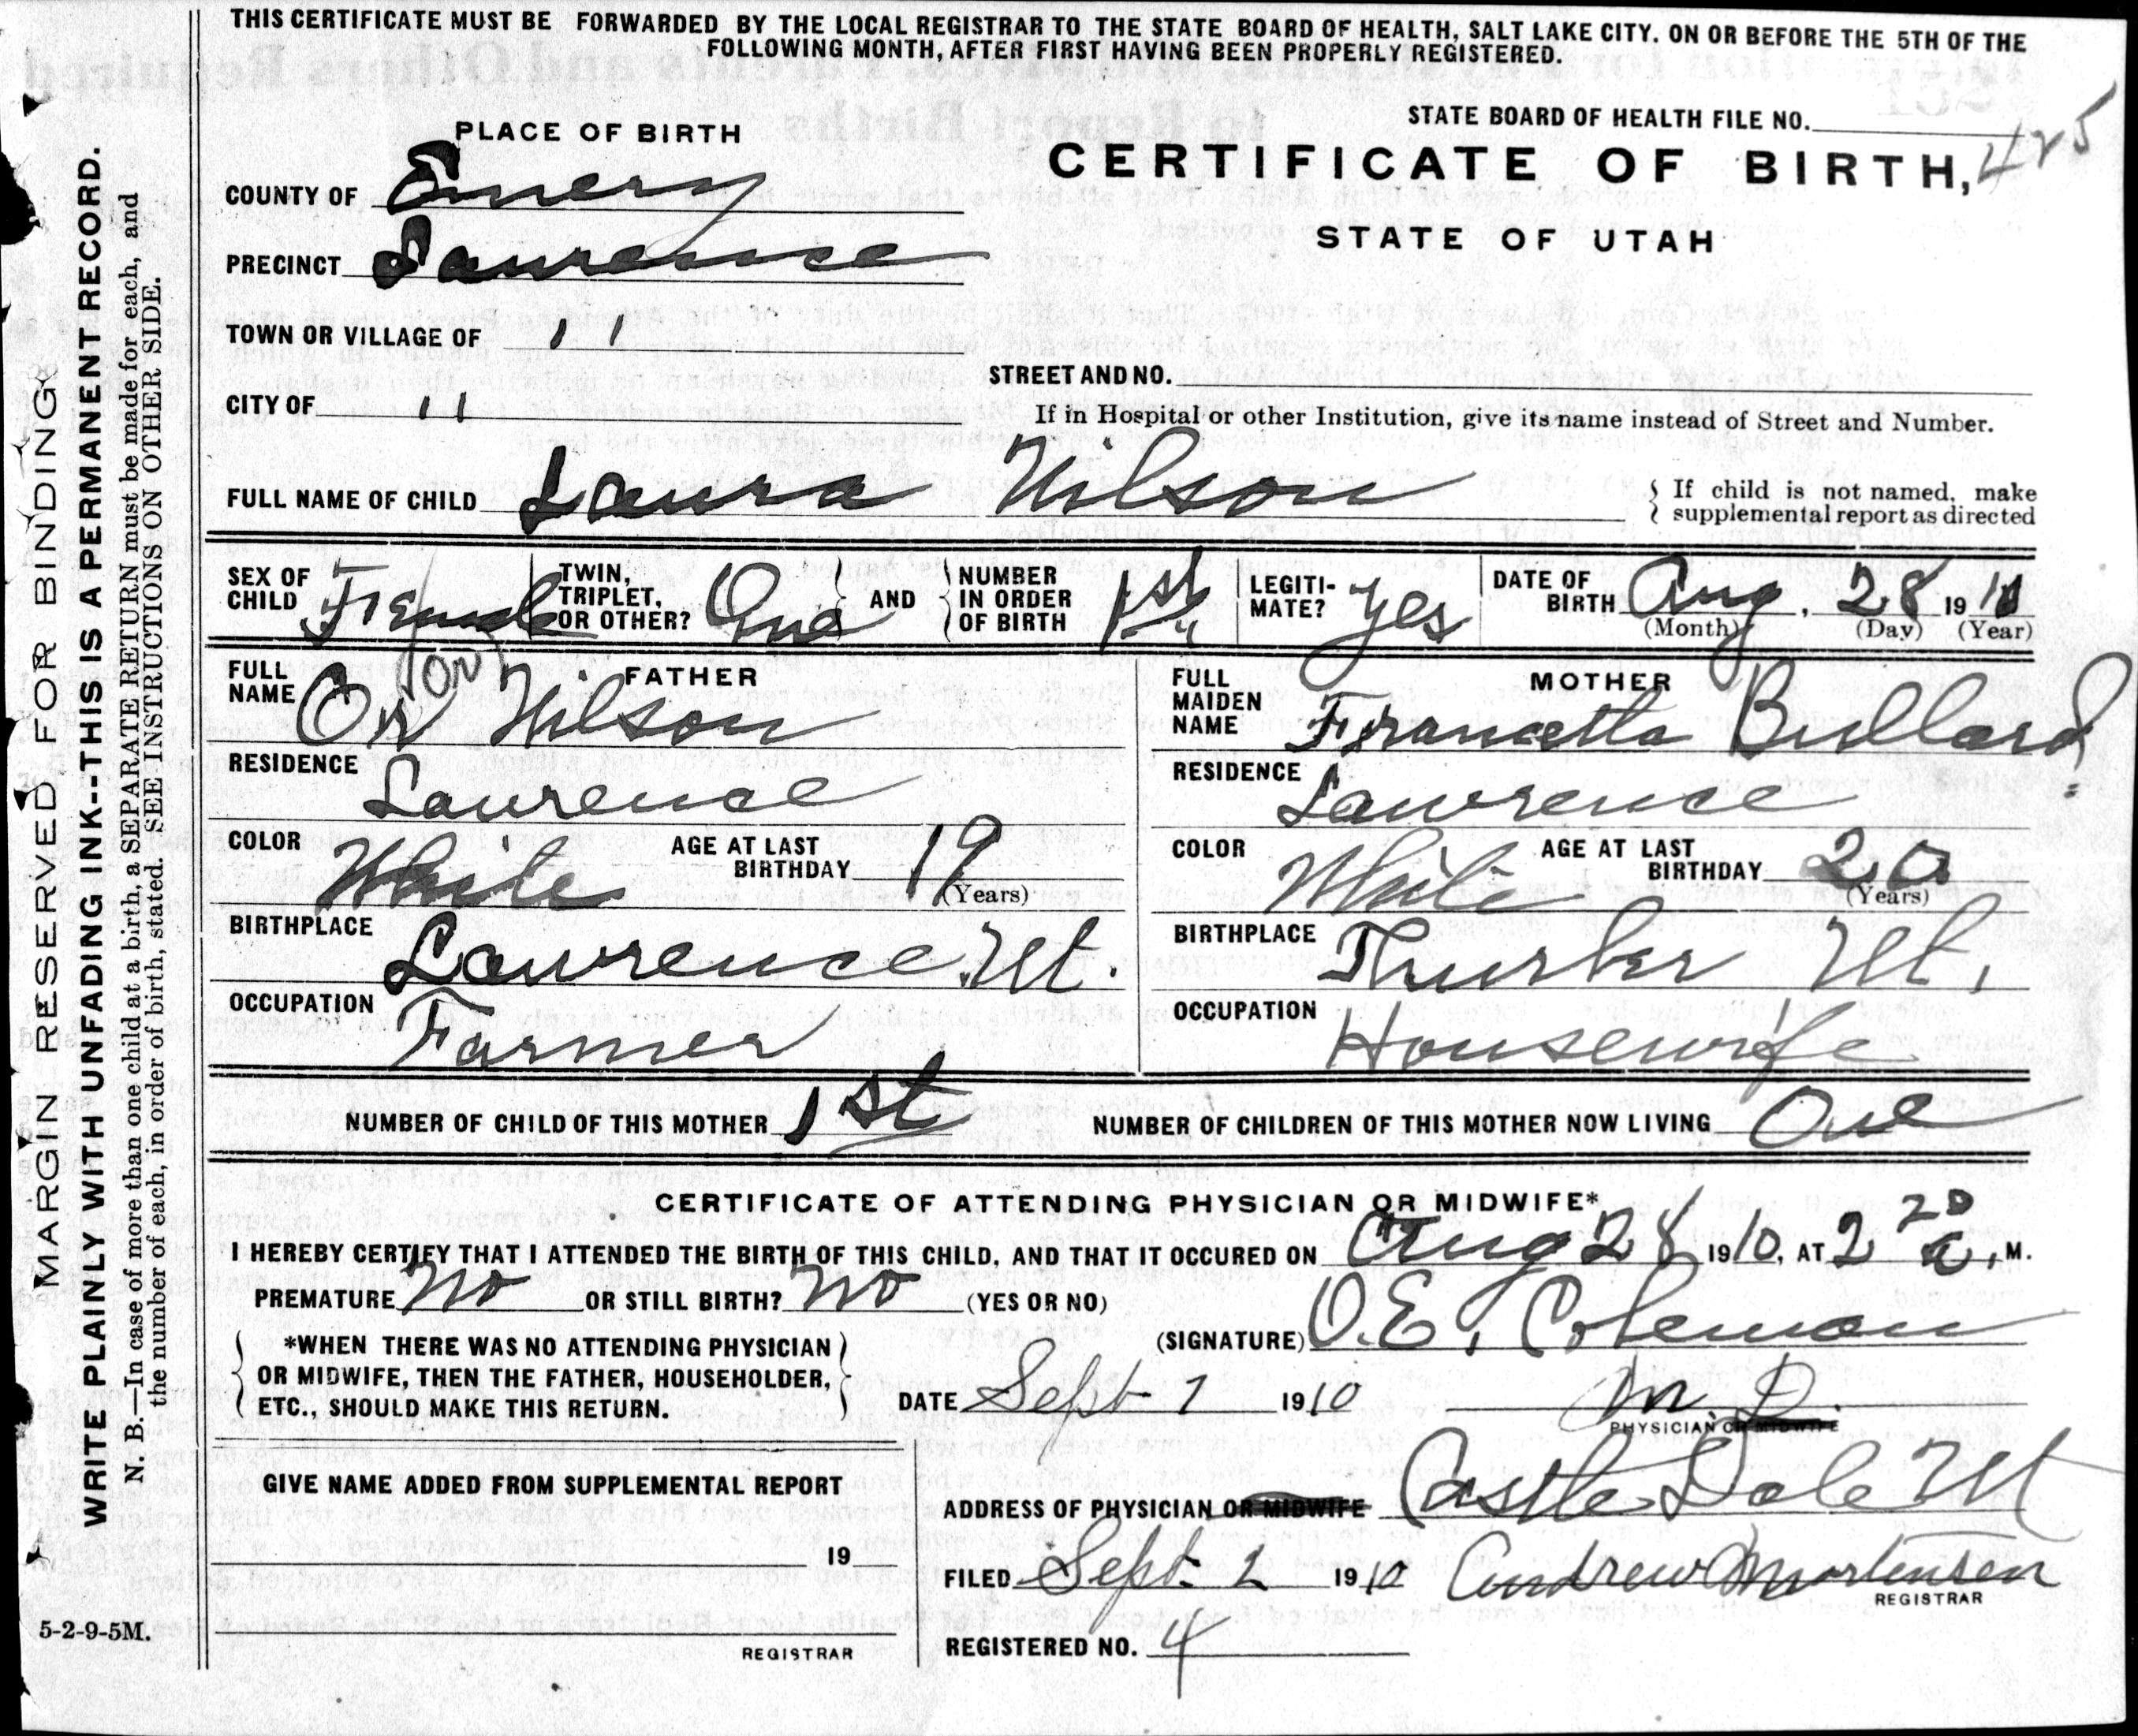 THIS CERTIFICATE MUST BE FORWARDED BY THE LOCAL REGISTRAR TO THE STATE BOARD OF HEALTH, SALT LAKE CITY, ON OR BEFORE THE 5TH OF THE
FOLLOWING MONTH, AFTER FIRST HAVING BEEN PROPERLY REGISTERED.
MARGIN RESERVED FOR BINDING
WRITE PLAINLY WITH UNFADING INK--THIS IS A PERMANENT RECORD.
N. B.—In case of more than one child at a birth, a SEPARATE RETURN must be made for each, and
the number of each, in order of birth, stated. SEE INSTRUCTIONS ON OTHER SIDE.
STATE BOARD OF HEALTH FILE NO. 425
PLACE OF BIRTH
CERTIFICATE OF BIRTH,
STATE OF UTAH
COUNTY OF Emery
PRECINCT Lawrence
TOWN OR VILLAGE OF 11
STREET AND NO.
CITY OF 11
If in Hospital or other Institution, give its name instead of Street and Number.
FULL NAME OF CHILD Laura Wilson
If child is not named, make
supplemental report as directed
SEX OF CHILD Female TWIN, TRIPLET, OR OTHER? One AND NUMBER IN ORDER OF BIRTH 1st LEGITIMATE? Yes DATE OF BIRTH Aug, 28 1910
(Month) (Day) (Year)
FATHER
FULL NAME Or Wilson
RESIDENCE Lawrence
COLOR White AGE AT LAST BIRTHDAY 19
(Years)
BIRTHPLACE Lawrence Ut.
OCCUPATION Farmer
MOTHER
FULL MAIDEN NAME Francetta Bullard
RESIDENCE Lawrence
COLOR White AGE AT LAST BIRTHDAY 20
(Years)
BIRTHPLACE Thurber Ut,
OCCUPATION Housewife
NUMBER OF CHILD OF THIS MOTHER 1st NUMBER OF CHILDREN OF THIS MOTHER NOW LIVING One
CERTIFICATE OF ATTENDING PHYSICIAN OR MIDWIFE*
I HEREBY CERTIFY THAT I ATTENDED THE BIRTH OF THIS CHILD, AND THAT IT OCCURED ON Aug 28 1910, AT 2 20 a, M.
PREMATURE No OR STILL BIRTH? No (YES OR NO)
*WHEN THERE WAS NO ATTENDING PHYSICIAN
OR MIDWIFE, THEN THE FATHER, HOUSEHOLDER,
ETC., SHOULD MAKE THIS RETURN.
(SIGNATURE) O.E. Coleman
DATE Sept 1 1910 M D.
PHYSICIAN OR MIDWIFE
GIVE NAME ADDED FROM SUPPLEMENTAL REPORT
19
REGISTRAR
ADDRESS OF PHYSICIAN OR MIDWIFE Castle Dale Ut
FILED Sept. 2 1910 Andrew Mortensen
REGISTRAR
REGISTERED NO. 4
5-2-9-5M.